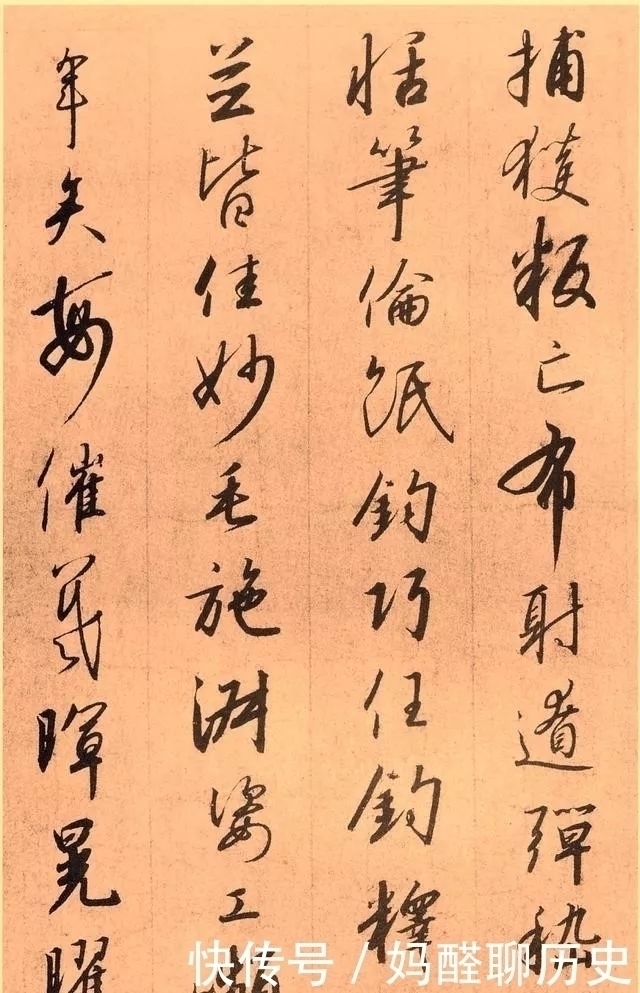 捕獲叛亡布射遼彈嵇
恬筆倫紙鈞巧任釣釋
並皆佳妙毛施淑姿工
年矢每催羲暉晃曜
快传号 / 妈醛聊历史